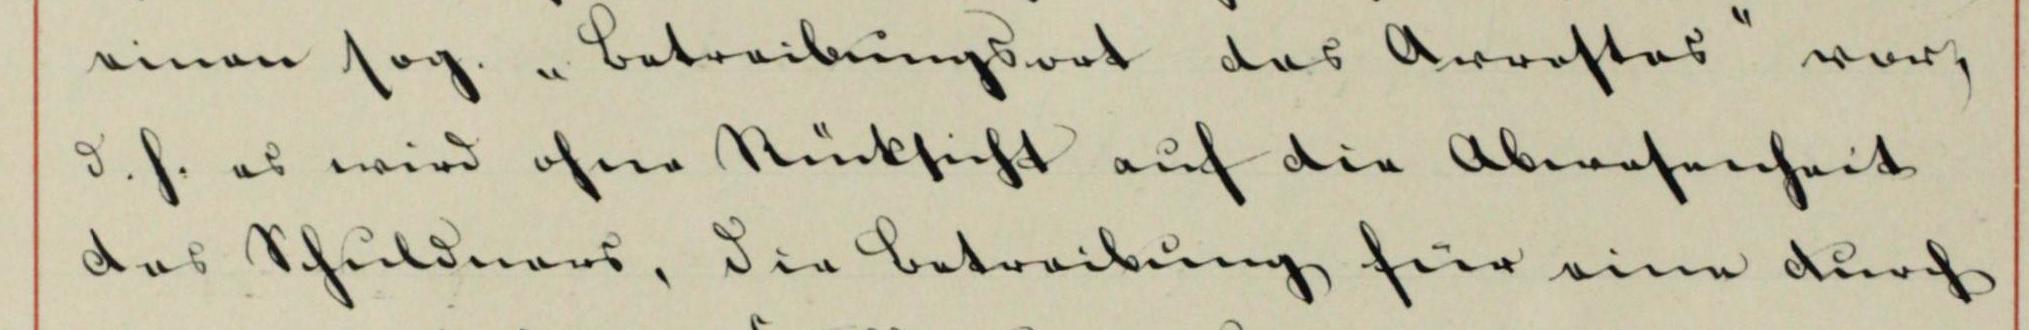 einen sog. „Betreibungsort des Arrestes" vor,
d. h. es wird ohne Rücksicht auf die Abwesenheit
des Schuldners, die Betreibung für eine durch